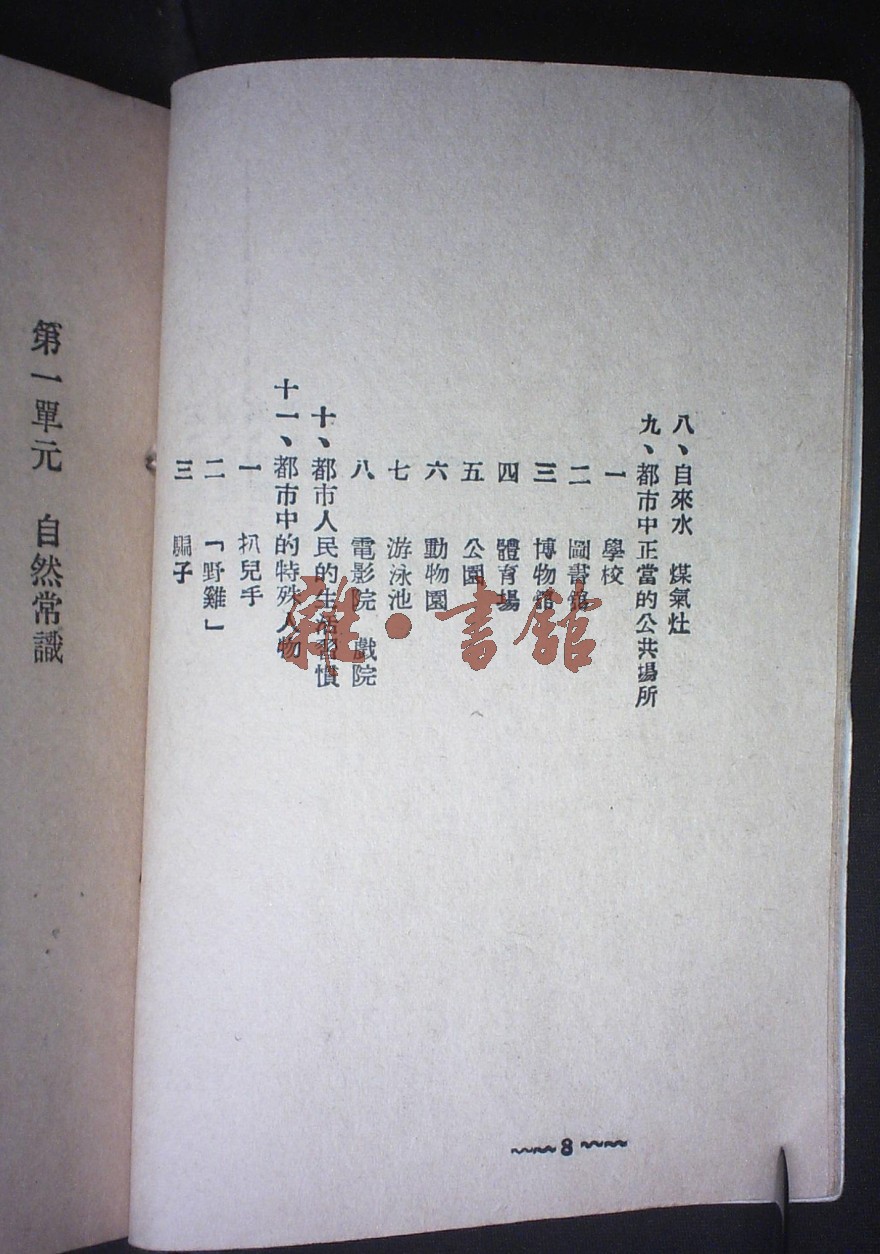 八、自來水　煤氣灶
九、都市中正當的公共場所
一　學校
二　圖書館
三　博物館
四　體育場
五　公園
六　動物園
七　游泳池
八　電影院　戲院
十、都市人民的生活習慣
十一、都市中的特殊人物
一　扒兒手
二　「野雞」
三　騙子
8
第一單元　自然常識
雜·書館